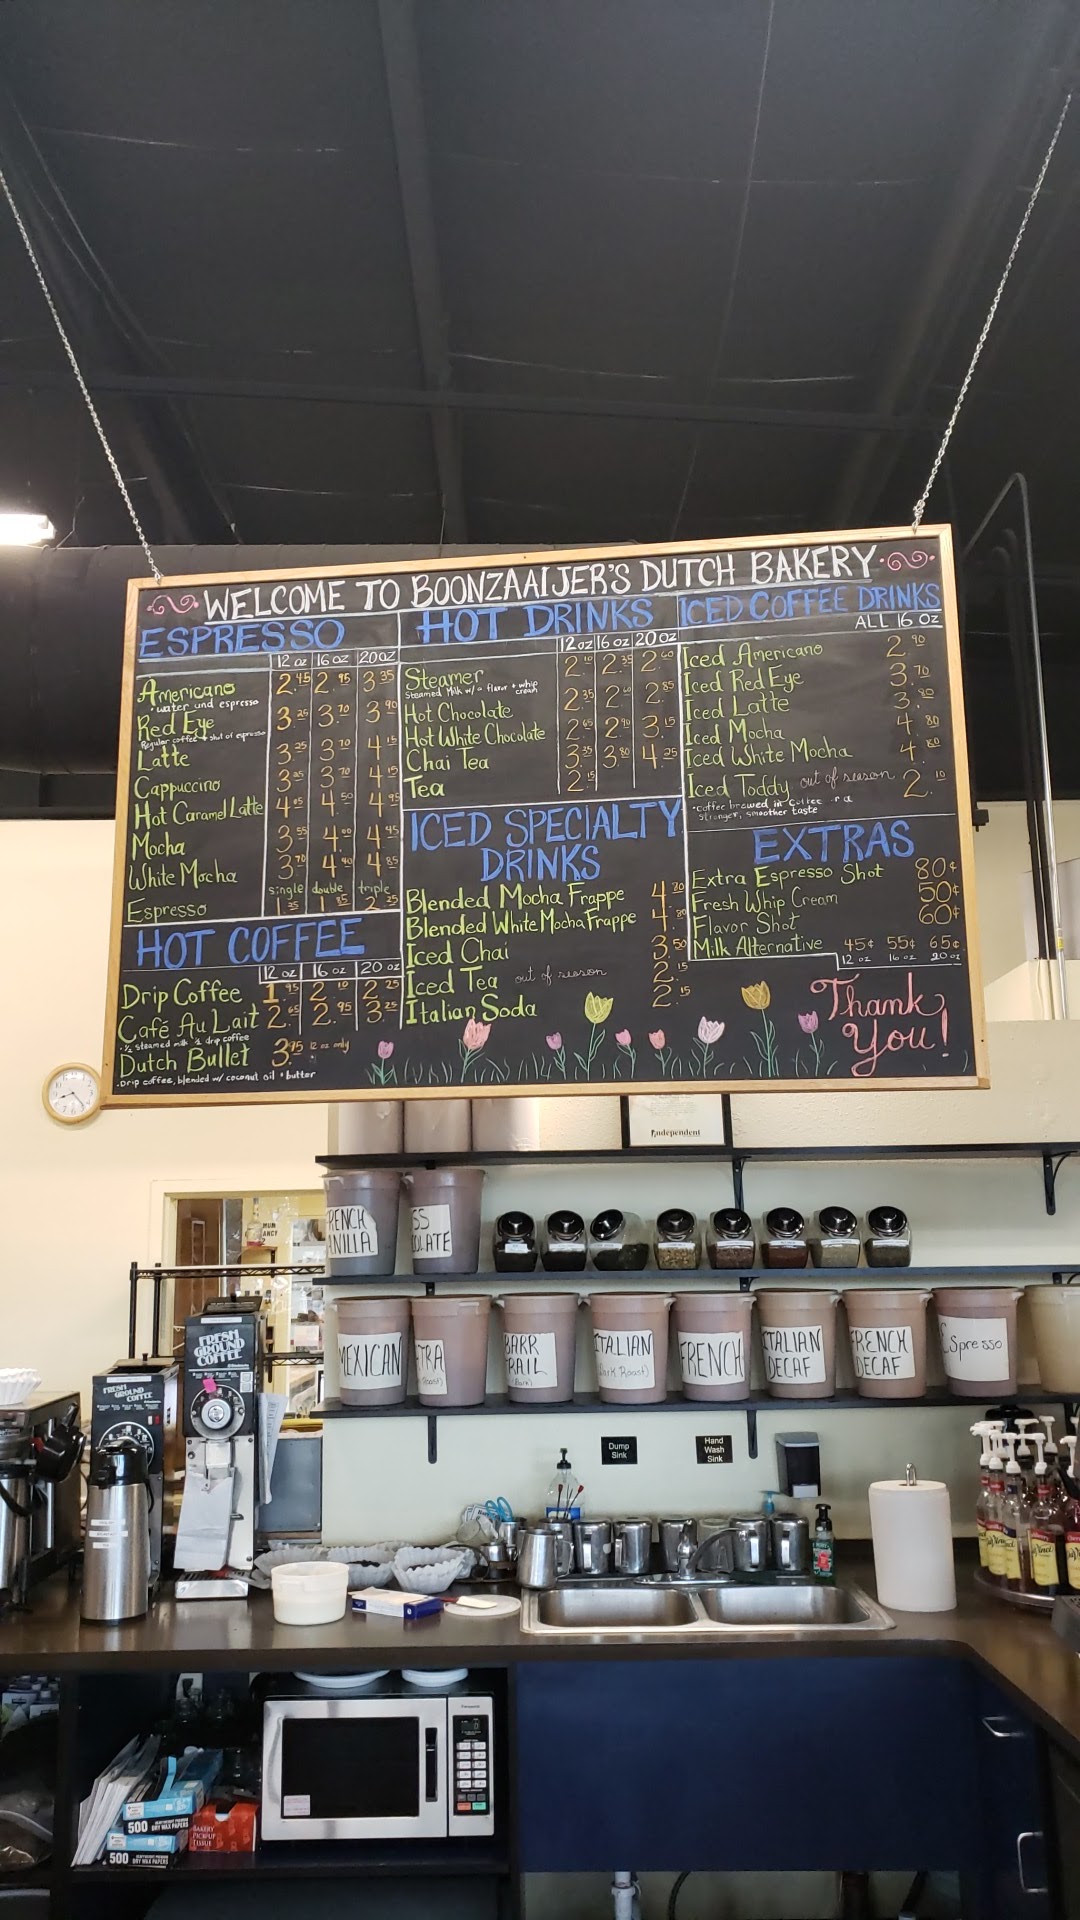 WELCOME TO BOONZAAIJER'S DUTCH BAKERY
ESPRESSO
12 oz 16 oz 20 oz
Americano 2.45 2.95 3.35
• water and espresso
Red Eye 3.25 3.70 3.90
Regular coffee + shot of espresso
Latte 3.25 3.70 4.15
Cappuccino 3.25 3.70 4.15
Hot Caramel Latte 4.05 4.50 4.95
Mocha 3.55 4.00 4.45
White Mocha 3.70 4.40 4.85
single double triple
Espresso 1.35 1.85 2.25
HOT COFFEE
12 oz 16 oz 20 oz
Drip Coffee 1.95 2.10 2.25
Café Au Lait 2.65 2.95 3.25
• ½ steamed milk ½ drip coffee
Dutch Bullet 3.95 12 oz only
• Drip coffee, blended w/ coconut oil + butter
HOT DRINKS
12 oz 16 oz 20 oz
Steamer 2.10 2.35 2.60
Steamed Milk w/ a flavor + whip cream
Hot Chocolate 2.35 2.60 2.85
Hot White Chocolate 2.65 2.90 3.15
Chai Tea 3.35 3.80 4.25
Tea 2.15
ICED SPECIALTY
DRINKS
Blended Mocha Frappe 4.80
Blended White Mocha Frappe 4.80
Iced Chai 3.50
Iced Tea out of season 2.15
Italian Soda 2.15
ICED COFFEE DRINKS
ALL 16 OZ
Iced Americano 2.90
Iced Red Eye 3.70
Iced Latte 3.80
Iced Mocha 4.80
Iced White Mocha 4.80
Iced Toddy out of season 2.10
• Coffee brewed in Coffee
stronger, smoother taste
EXTRAS
Extra Espresso Shot 80¢
Fresh Whip Cream 50¢
Flavor Shot 60¢
Milk Alternative 45¢ 55¢ 65¢
12 oz 16 oz 20 oz
Thank
You!
Independent
MEXICAN
ITALIAN
(Dark Roast)
FRENCH
ITALIAN
DECAF
FRENCH
DECAF
Espresso
FRESH
GROUND
COFFEE
FRESH
GROUND COFFEE
Dump
Sink
Hand
Wash
Sink
Panasonic
500 DRY WAX PAPERS
500 DRY WAX PAPERS
BAKERY
PICKUP
TISSUE